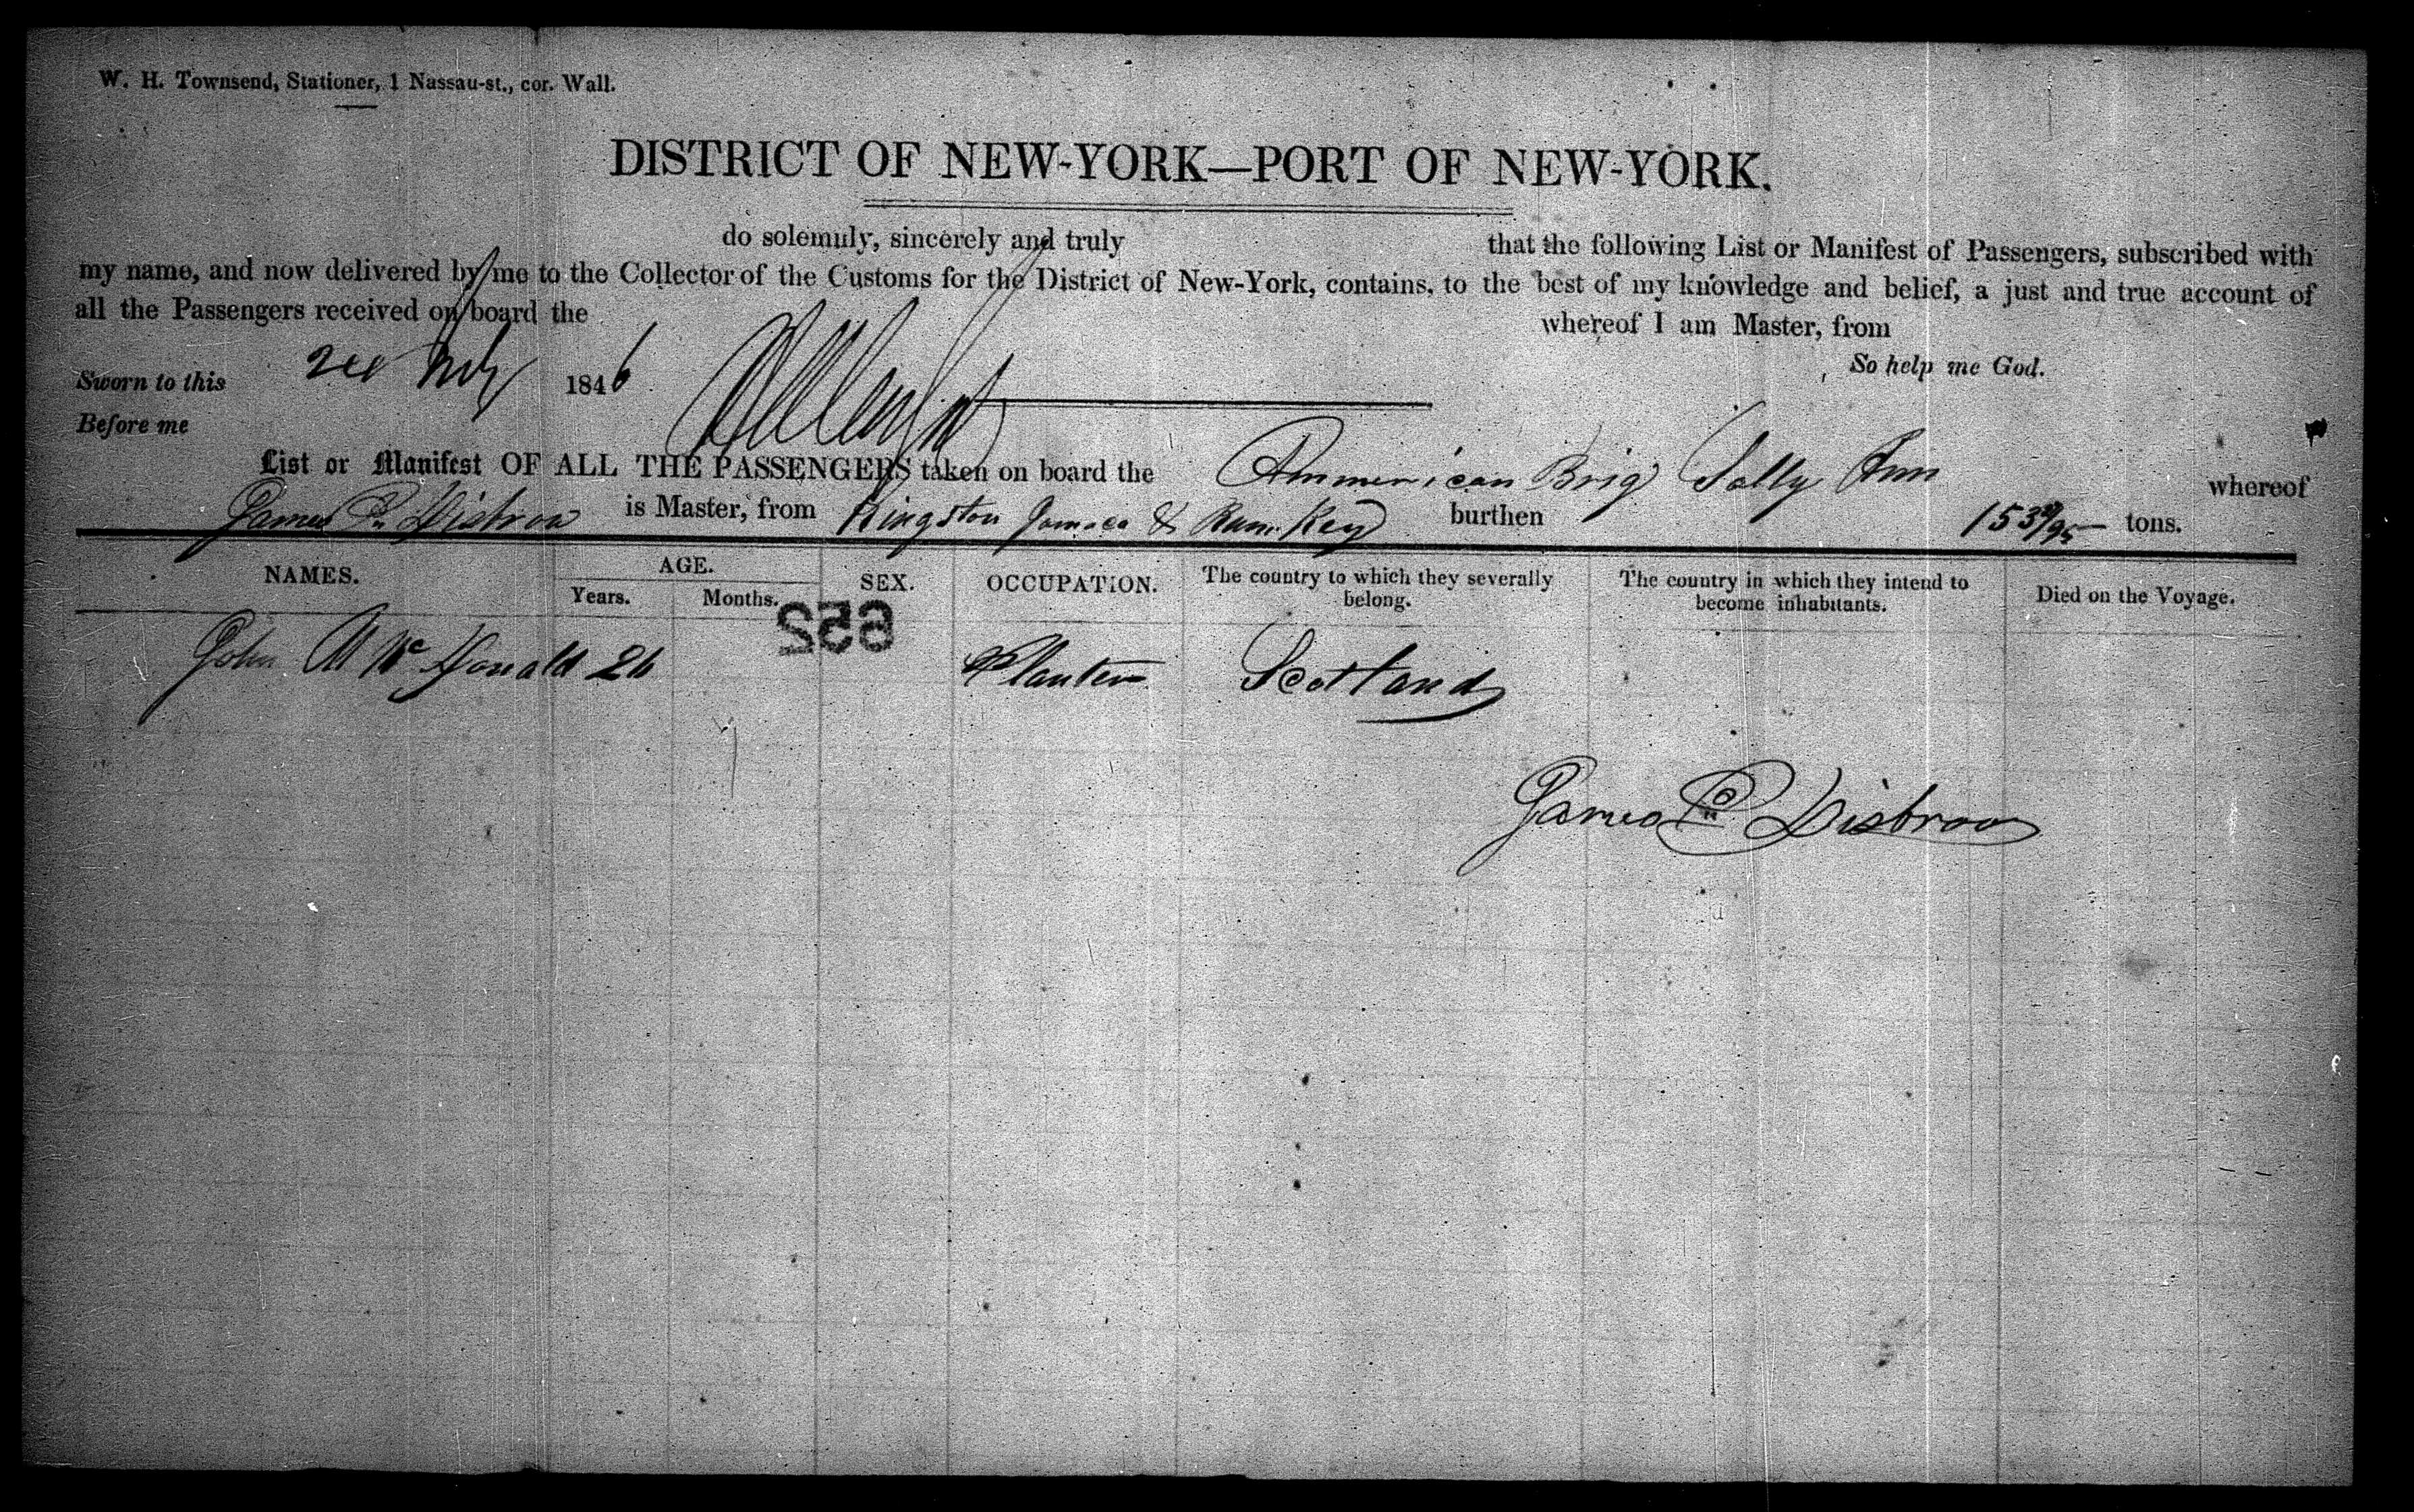 W. H. Townsend, Stationer, 1 Nassau-st., cor. Wall.
DISTRICT OF NEW-YORK—PORT OF NEW-YORK.
do solemnly, sincerely and truly that the following List or Manifest of Passengers, subscribed with
my name, and now delivered by me to the Collector of the Customs for the District of New-York, contains, to the best of my knowledge and belief, a just and true account of
all the Passengers received on board the whereof I am Master, from
So help me God.
Sworn to this July 1846
Before me
List or Manifest OF ALL THE PASSENGERS taken on board the Ammerican Brig Sally Ann whereof
James P Disbrow is Master, from Kingston Jamaca & Rum Key burthen 153 /95 tons.
NAMES. AGE. SEX. OCCUPATION. The country to which they severally belong. The country in which they intend to become inhabitants. Died on the Voyage.
Years. Months.
652
John M McDonald 26 Planter Scotland
James P Disbrow